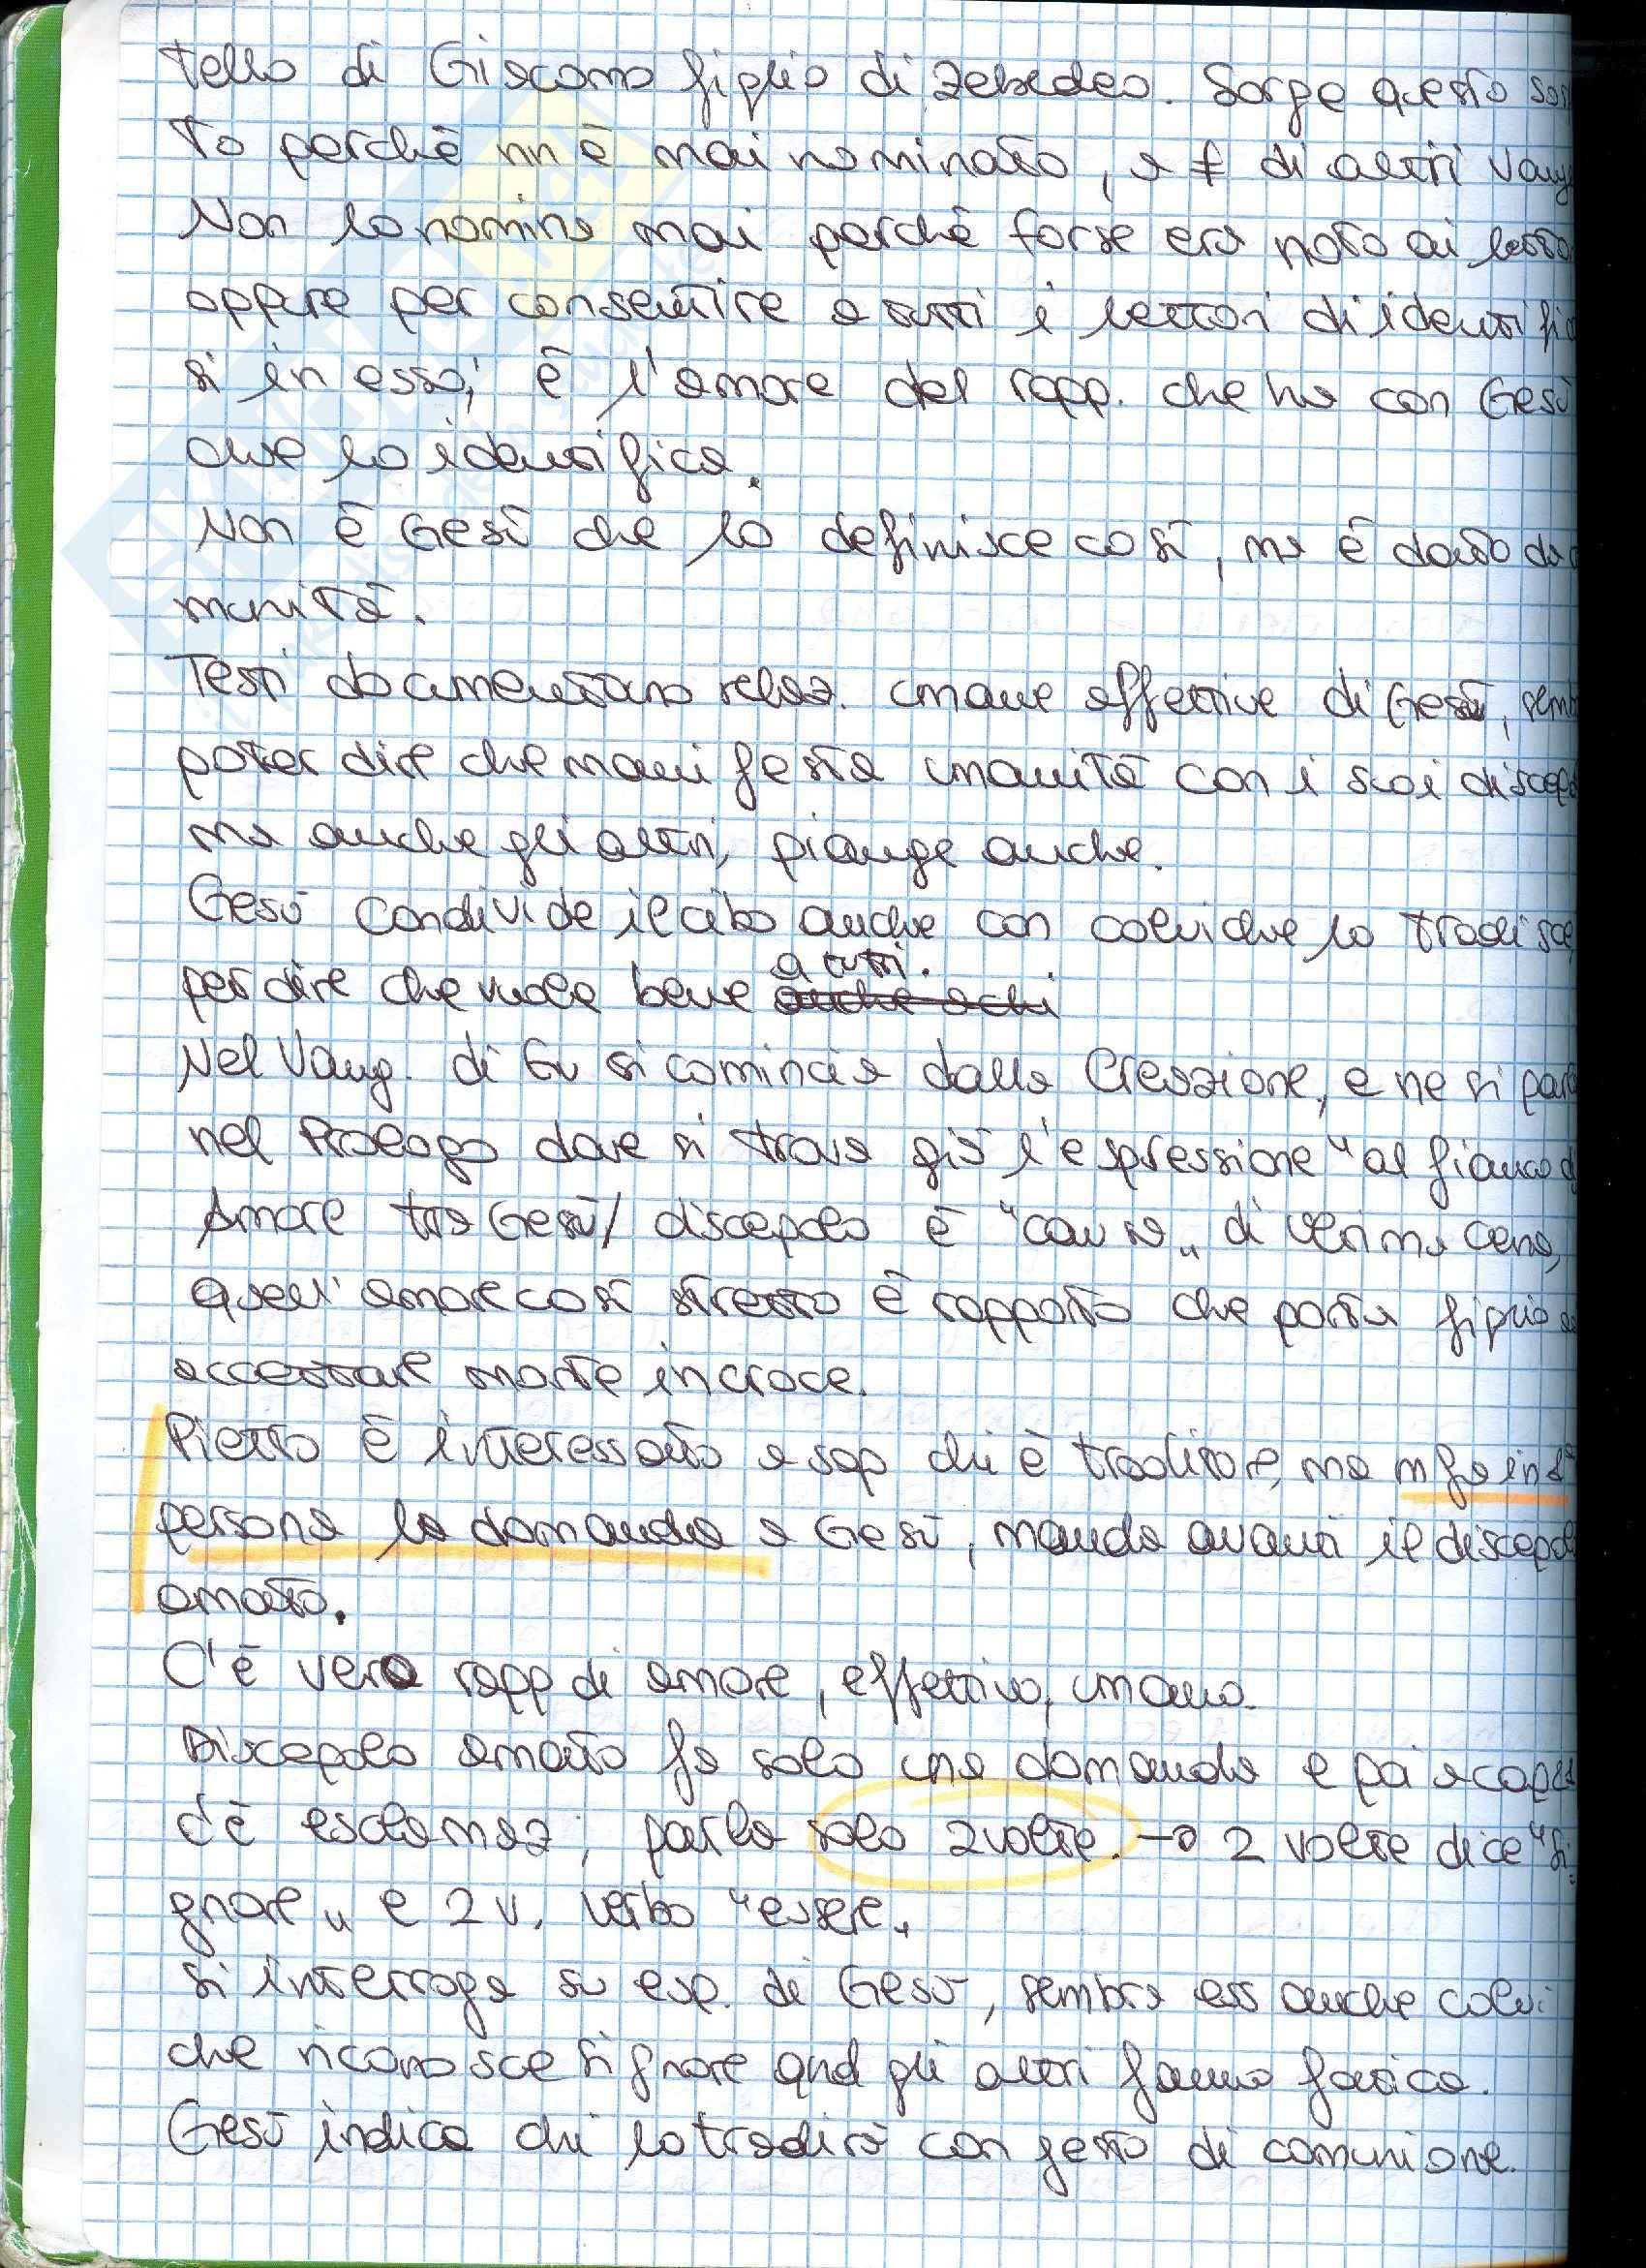 tello di Giacomo figlio di Zebedeo. Sorge questo
to perchè nn è mai nominato, a ≠ di altri Vang
Non lo nomina mai perchè forse era noto ai letto
oppure per consentire a tutti i lettori di identifi
si in esso; è l'amore del rapp. che ha con Gesù
che lo identifica.
Non è Gesù che lo definisce così, ma è dato da
munità.
Testi documentano relaz. umane affettive di Gesù, semb
poter dire che manifesta umanità con i suoi discepo
ma anche gli altri, piange anche.
Gesù condivide il cibo anche con colui che lo tradisce
per dire che vuole bene a tutti. anche a chi
Nel Vang. di Gv si comincia dalla Creazione, e ne si parl
nel Prologo dove si trova già l'espressione "al fianco d
Amore tra Gesù/ discepolo è "causa" di ultima cena,
quell'amore così stretto è rapporto che porta figlio ad
accettare morte in croce.
Pietro è interessato a sap chi è traditore, ma n fa in 1ª
persona la domanda a Gesù, manda avanti il discepol
amato.
C'è vero rapp di amore, affettivo, umano.
Discepolo amato fa solo una domanda e poi a cap 21
c'è esclamaz; parla solo 2 volte. → 2 volte dice "Si
gnore" e 2 v. verbo "essere"
Si interroga su esp. di Gesù, sembra ess anche colui
che riconosce Signore qnd gli altri fanno fatica.
Gesù indica chi lo tradirà con gesto di comunione.